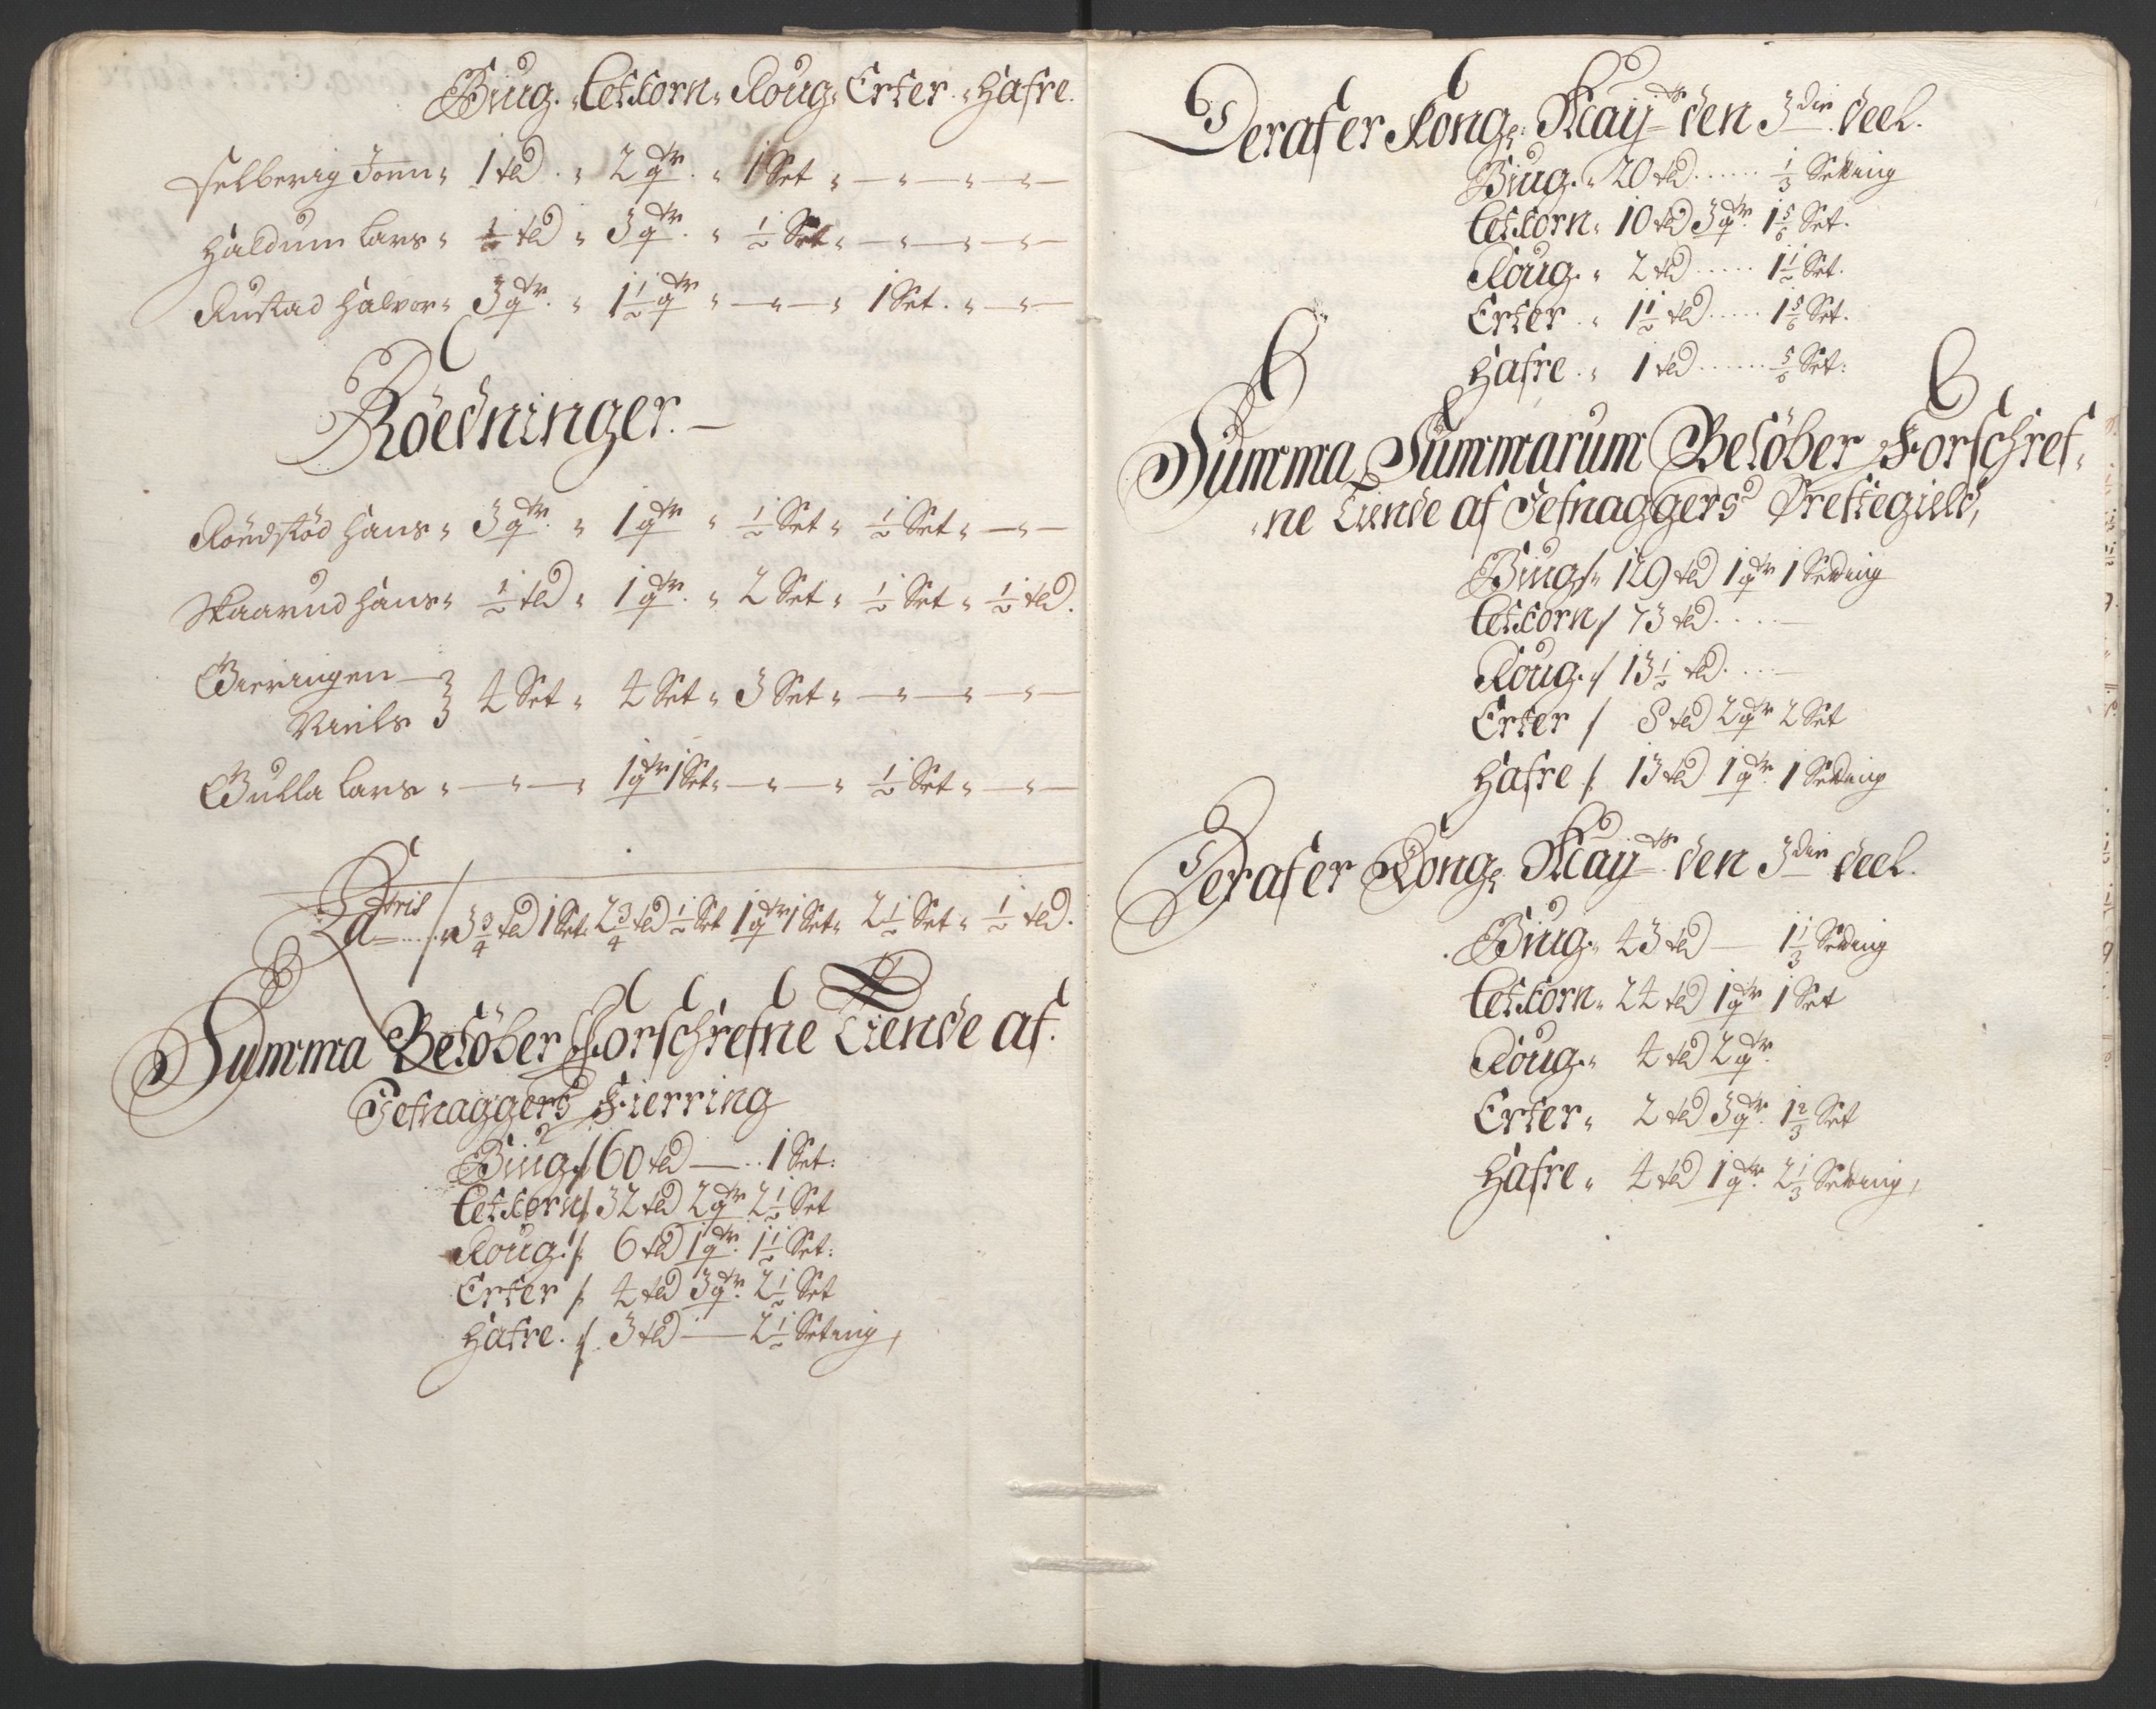 Biug. „ Letkorn „ Roug „ Erter „ Hafre.
Selberig Jonn „ 1 td „ 2 qtr. „ 1 Set „ — „ — „ —
Haldum Lars „ ½ td „ 3 qtr. „ ½ Set „ — „ — „ —
Rustad Halvor „ 3 qtr. „ 1½ qtr „ — „ — „ 1 Set. „ — „ —
Röedninger. —
Röndstöd Hans „ 3 qtr. „ 1 qtr „ ½ Set „ ½ Set „ — „ —
Skaarud Hans „ ½ td „ 1 qtr. „ 2 Set „ ½ Set „ ½ td.
Gieringen —
Niels } 4 Set „ 4 Set „ 3 Set „ — „ — „ —
Gulla Lars „ — „ — „ 1 qtr 1 Set „ — „ — „ ½ Set „ — „ —
3¾ td 1 Set „ 2¾ td ½ Set 1 qtr 1 Set „ 2½ Set „ ½ td.
Summa Belöber Forschrefne Tiende af
Jefnaggers Fierring
Biug / 60 td — 1 Set:
Letkorn / 32 td 2 qtr 2½ Set
Roug / 6 td 1 qtr. 1½ Set:
Erter / 4 td 3 qtr. 2½ Set
Hafre. / 3 td — 2½ Seting,
Deraf er Kong: Maytz den 3die deel.
Biug. „ 20 td ...... ⅓ Setting
Letkorn „ 10 td 3 qtr. 1⅚ Set.
Roug. „ 2 td ..... 1½ Set.
Erter. „ 1½ td ..... 1⅚ Set.
Hafre. „ 1 td ...... ⅚ Set:
Summa Summarum Belöber Forschref-
ne Tiende af Jefnaggers Prestegield,
Biug / 129 td 1 qtr 1 Setting
Letkorn / 73 td. . . . —
Roug. / 13½ td. . . —
Erter / 8 td 2 qtr 2 Set
Hafre / 13 td 1 qtr. 1 Setting
Deraf er Kong: Maytz den 3die deel.
Biug. „ 43 td — 1⅓ Setting
Letkorn „ 24 td 1 qtr 1 Set
Roug. „ 4 td 2 qtr.
Erter „ 2 td 3 qtr. 1⅔ Set
Hafre „ 4 td 1 qtr. 2⅓ Setting,